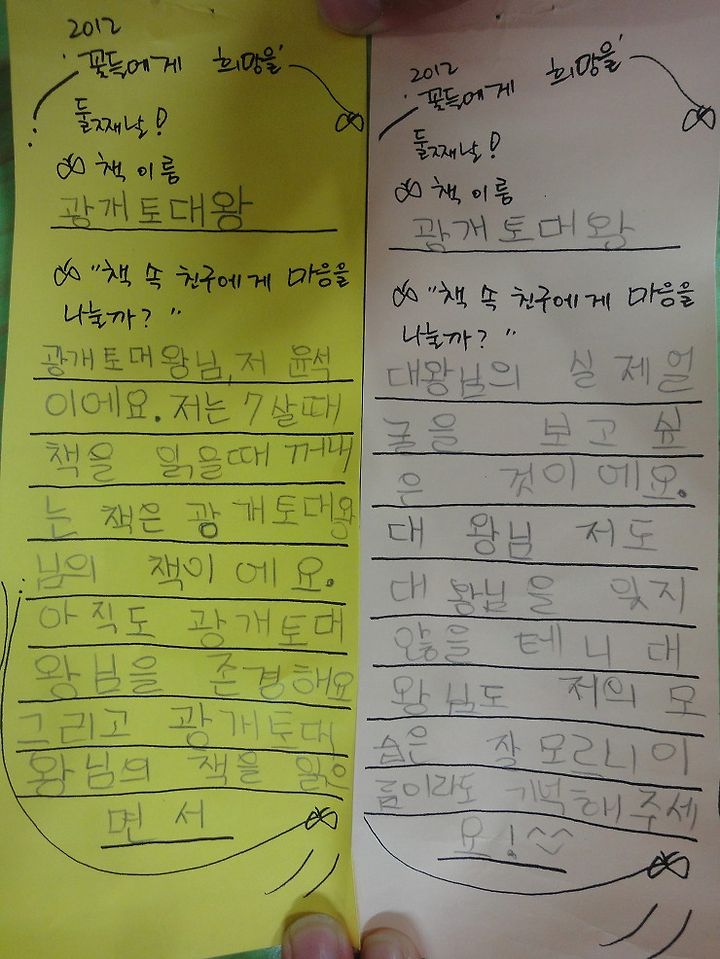 2012
꽃들에게 희망을
둘째날!
책 이름
광개토대왕
"책 속 친구에게 마음을
나눌까?"
광개토대왕님, 저 윤석
이에요. 저는 7살때
책을 읽을때 꺼내
는 책은 광개토대왕
님의 책이에요.
아직도 광개토대
왕님을 존경해요
그리고 광개토대
왕님의 책을 읽으
면서
2012
꽃들에게 희망을
둘째날!
책 이름
광개토대왕
"책 속 친구에게 마음을
나눌까?"
대왕님의 실제얼
굴을 보고싶
은 것이에요.
대왕님 저도
대왕님을 잊지
않을테니 대
왕님도 저의 모
습은 잘모르니 이
름이라도 기억해주세
요! ^^